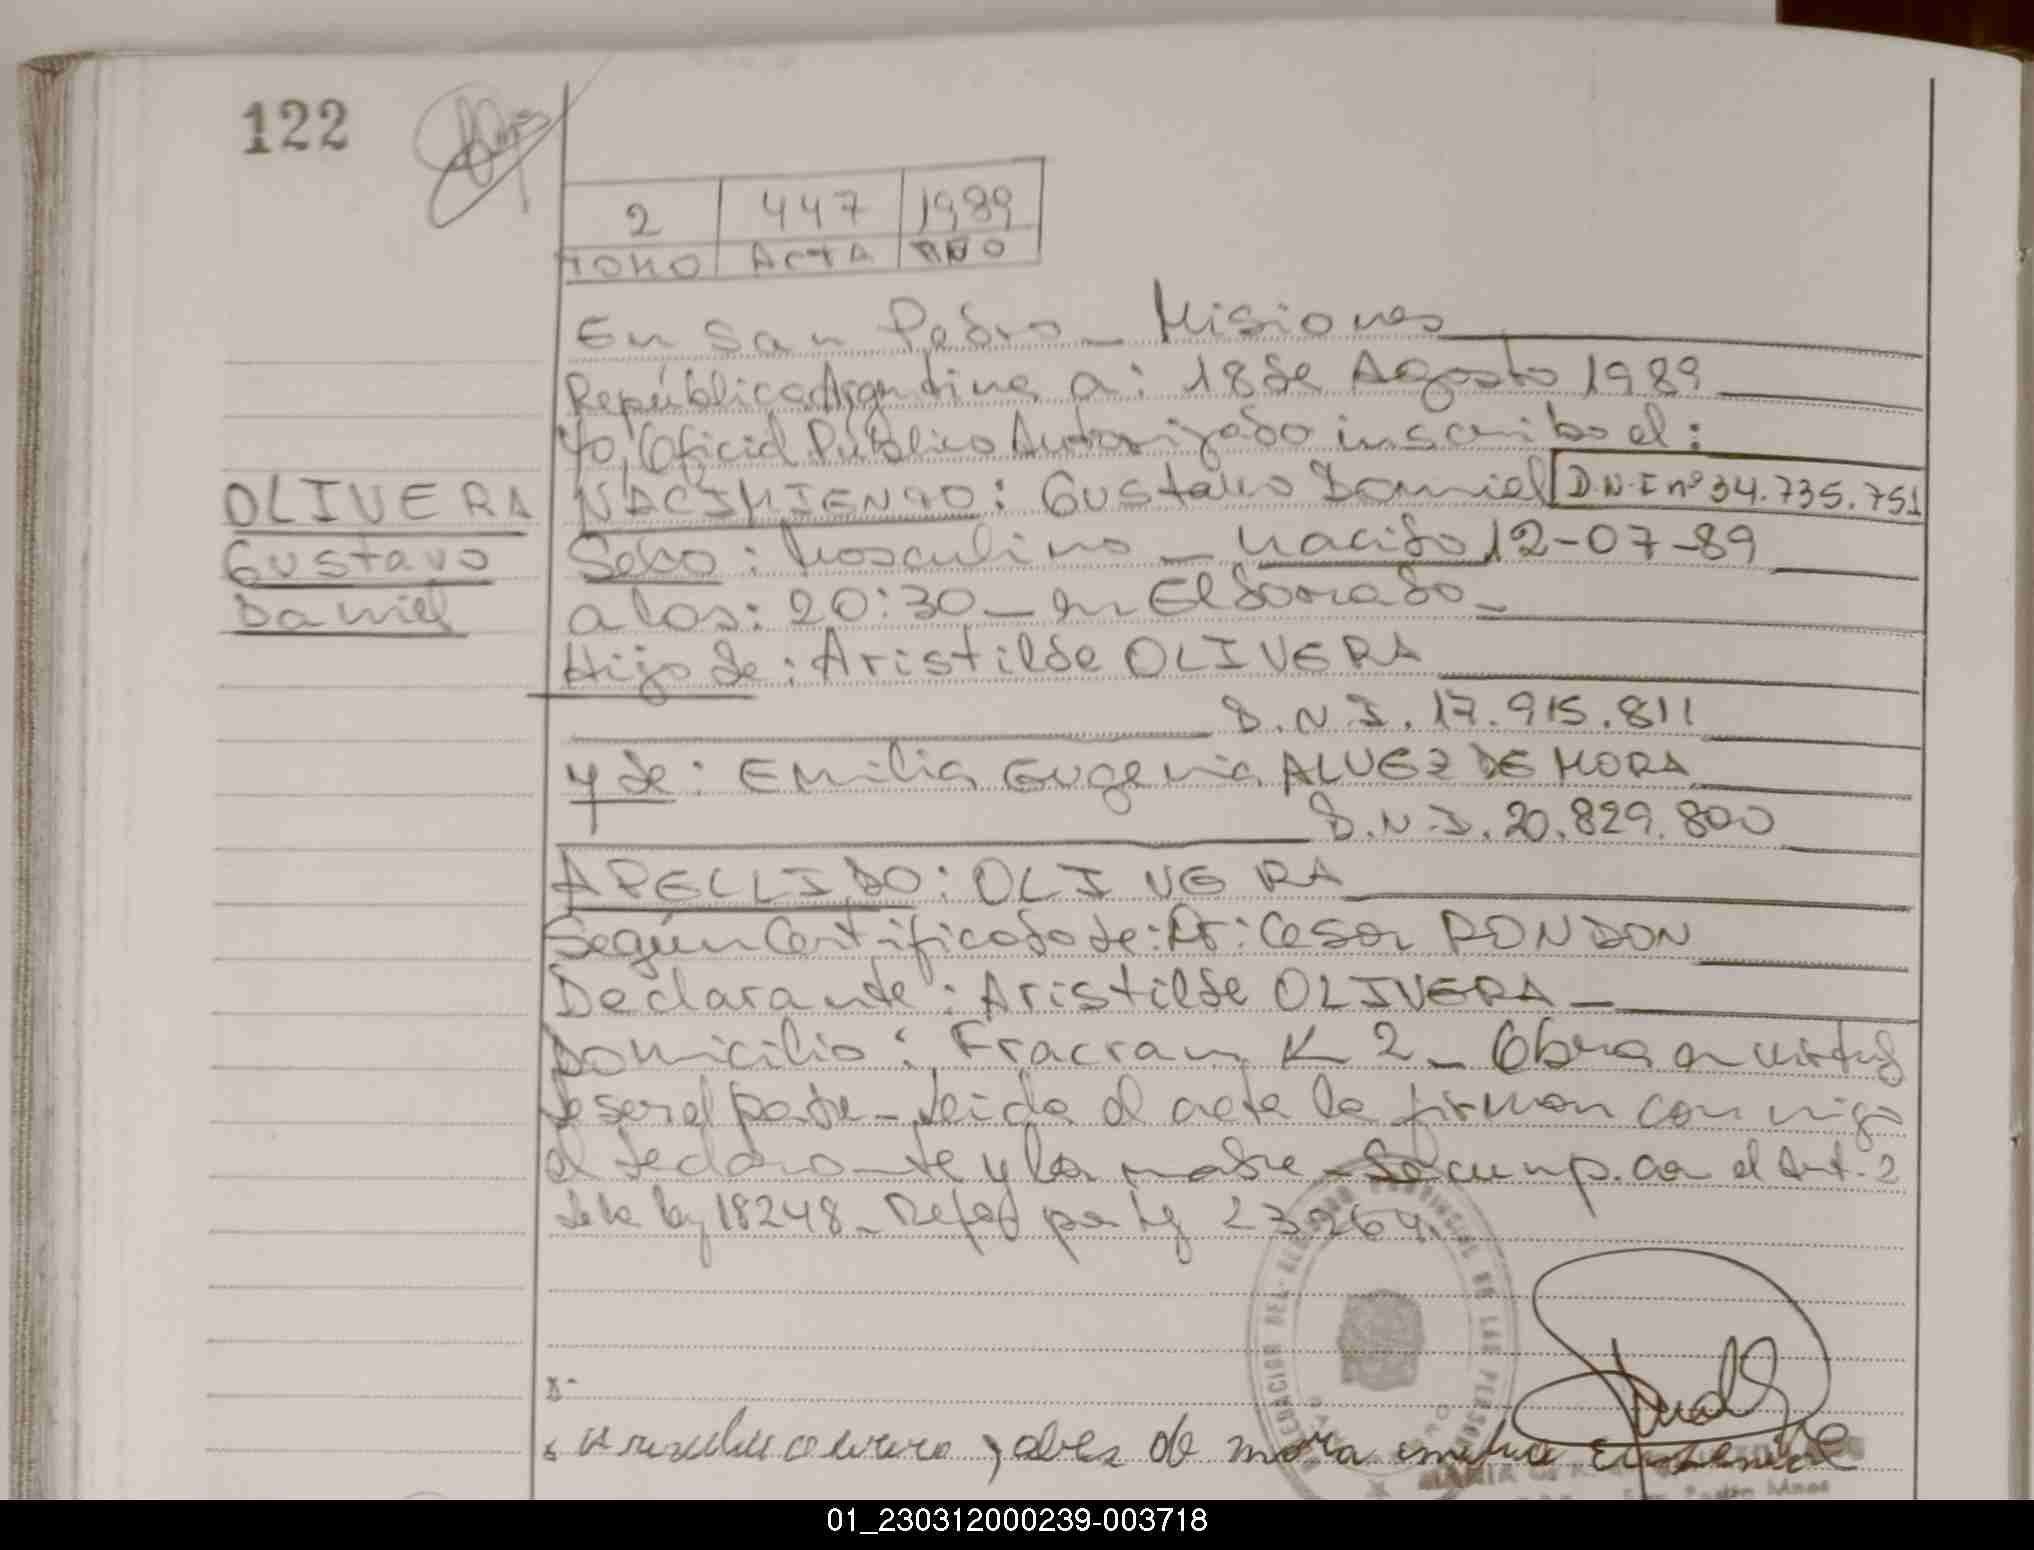 122
2 447 1989
TOMO ACTA AÑO
En San Pedro - Misiones
República Argentina a: 18 de Agosto 1989
Yo, Oficial Público Autorizado inscribo el:
OLIVERA
Gustavo
Daniel
NACIMIENTO: Gustavo Daniel D.N.I nº 34.735.751
Sexo: Masculino - nacido 12-07-89
a las: 20:30 - en Eldorado -
Hijo de: Aristilde OLIVERA
D.N.I. 17.915.811
y de: Emilia Eugenia ALVEZ DE MORA
D.N.I. 20.829.800
APELLIDO: OLIVERA
Según Certificado de: Dr: Cesar RONDON
Declarante: Aristilde OLIVERA -
Domicilio: Fracran K 2 - Obra en virtud
de ser el padre - Leida el acta la firman conmigo
el declarante y la madre - Se cump. con el Art. 2
de la ley 18248 - Refod por Ley 23264.
DELEGACION DEL REGISTRO PROVINCIAL DE LAS PERSONAS
olivera, alvez de mora emilia Eugenia
01_230312000239-003718